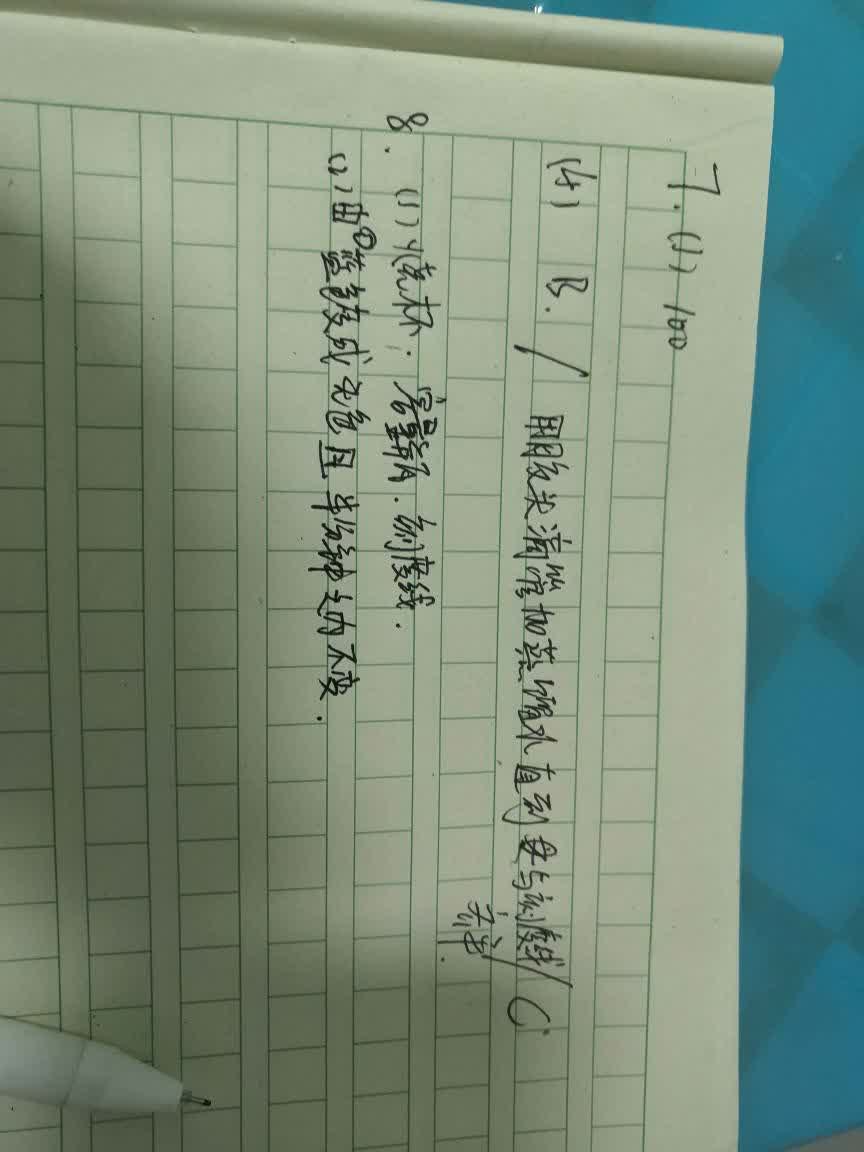 7. (1) 100
(4) B. / 用胶头滴管加蒸馏水直到与刻度线 / C.
齐平.
8. (1) 烧杯. 容量瓶. 刻度线.
(2) 由蓝色变成无色且半分钟之内不变.